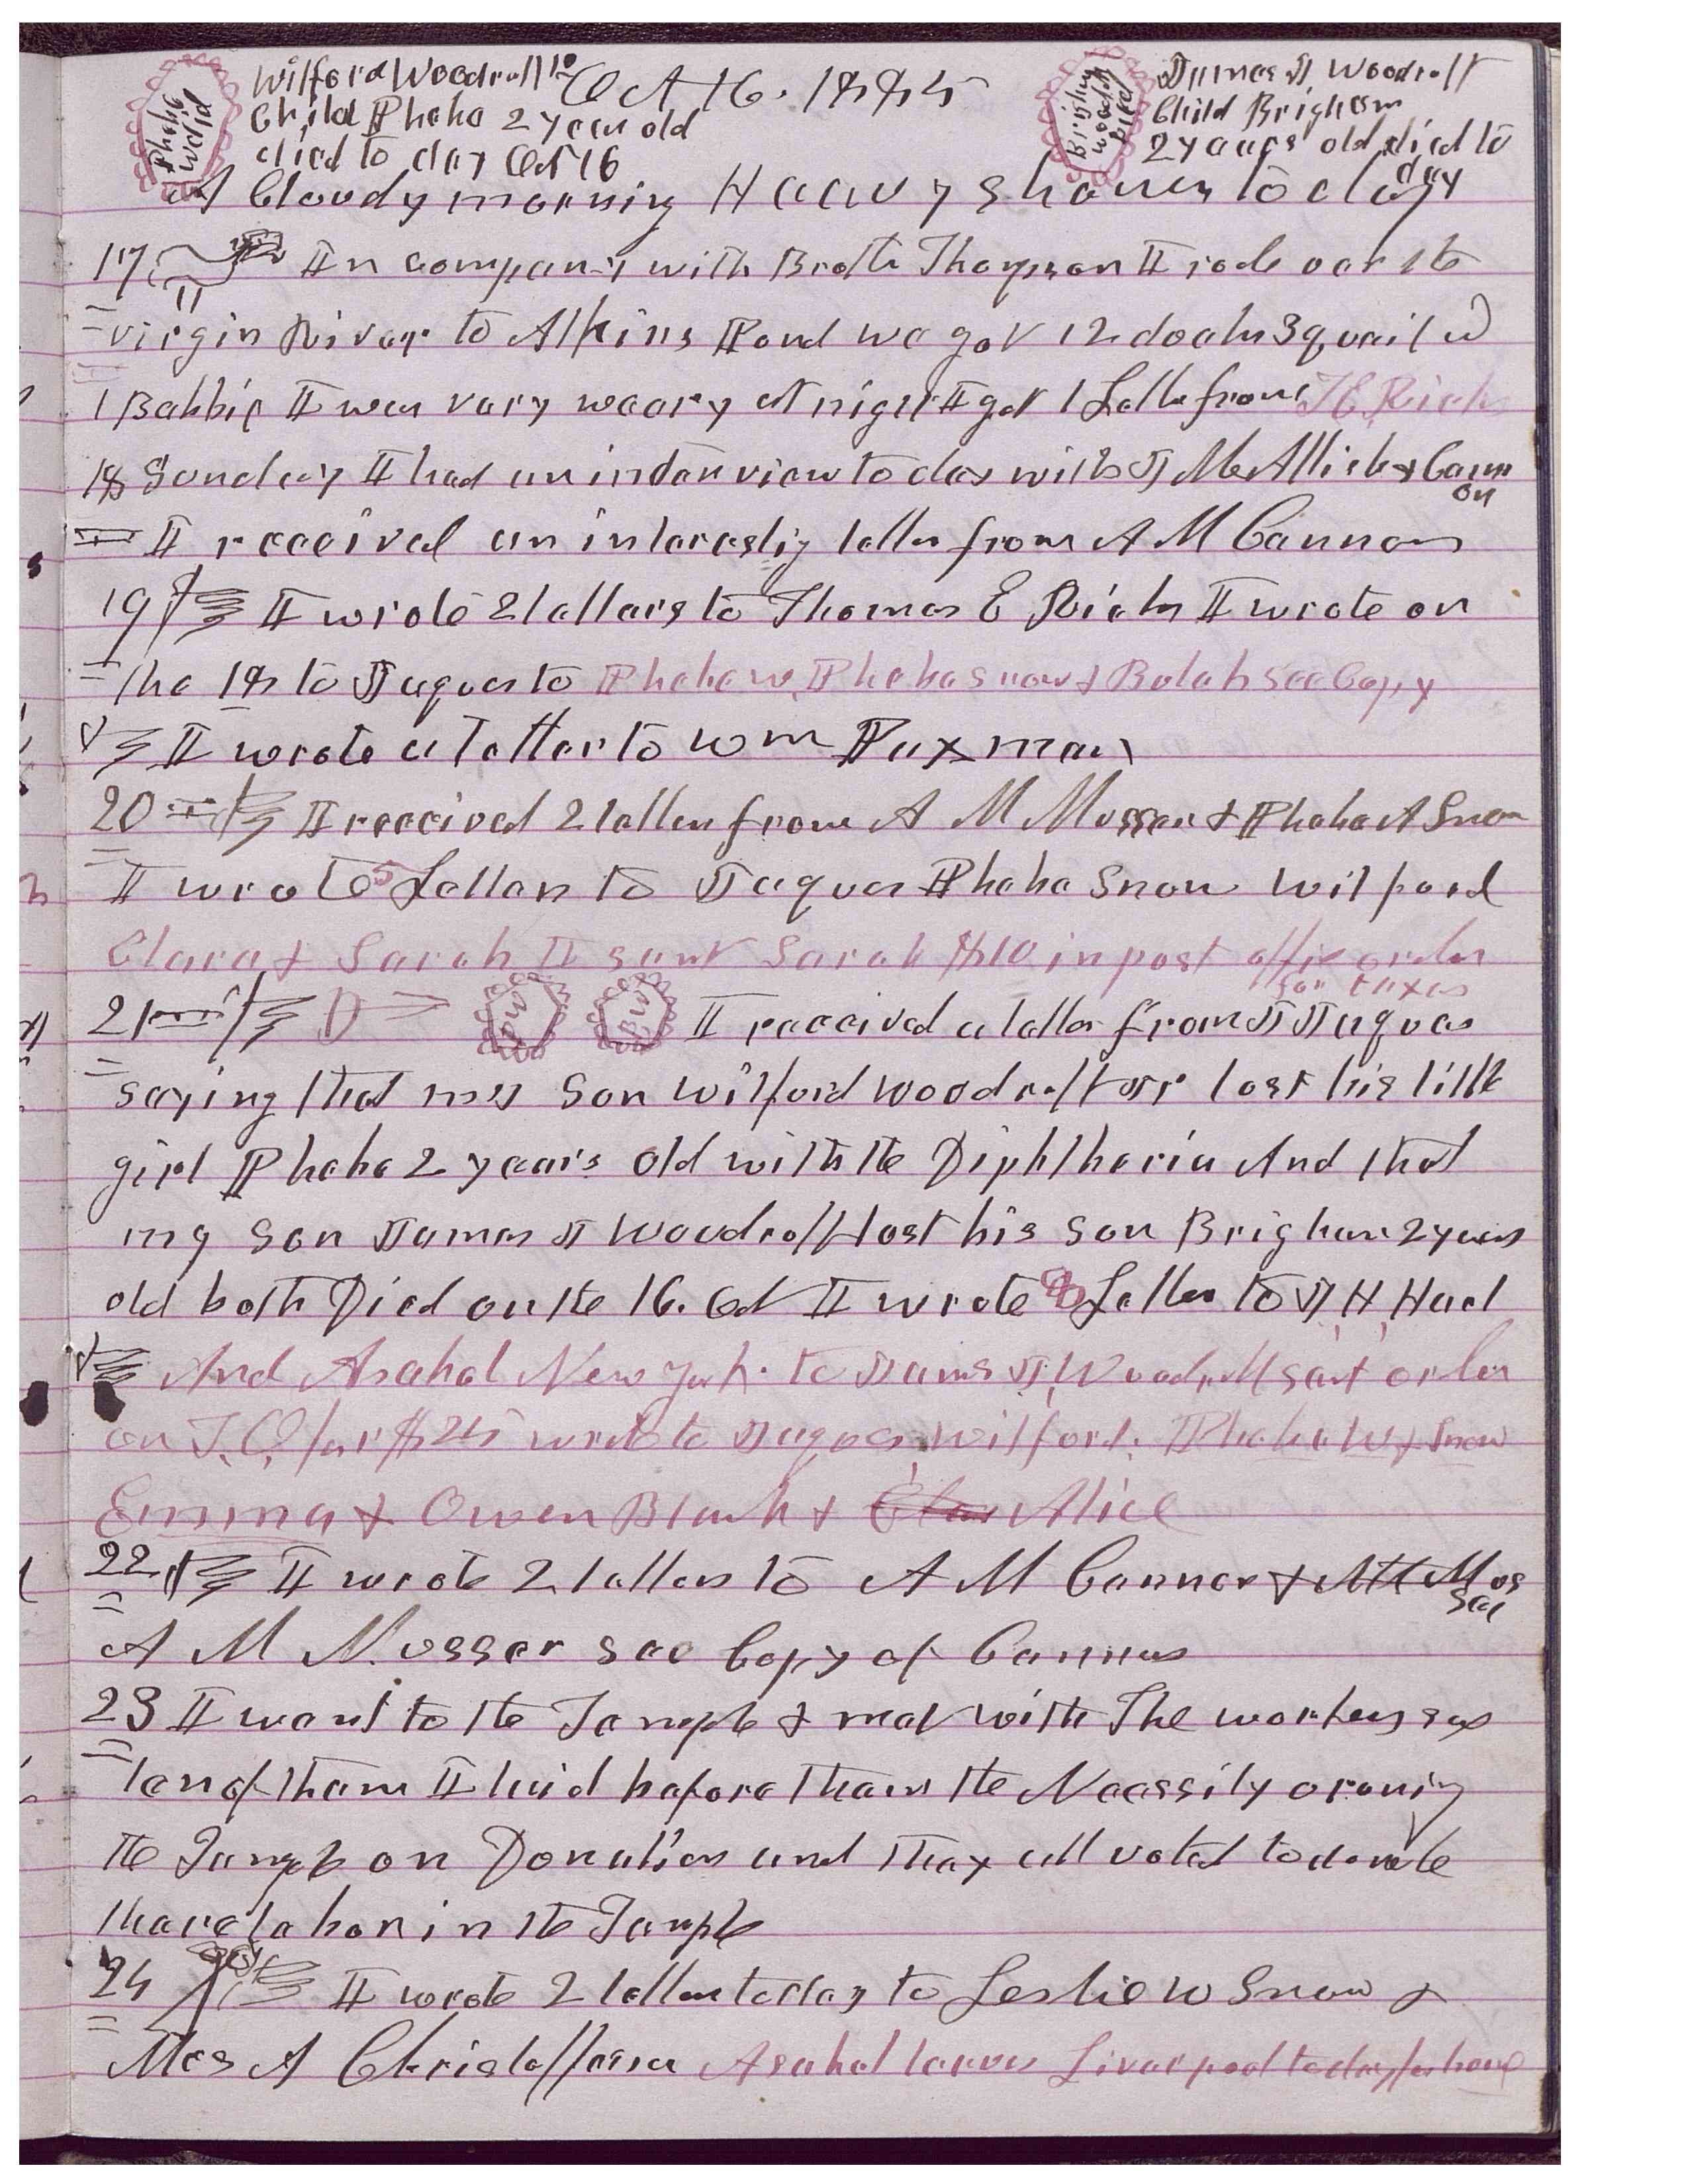 Wilford Woodruff Jr
Child Phebe 2 year old
died to day Oct 16
Phebe
W died
Oct 16. 1885
Brigham
Woodruff
Died
James J Woodruff
Child Brigham
2 years old died to
day
A Cloudy morning Heavy shower to day
17 In company with Broth Thompson I rode over the
virgin River to Atkins Pond we got 12 ducks 3 quail &
1 Rabbit I was very weary at night I got 1 Letter from T E Ricks
18 Sunday I had an interview to day with J McAllister & Cann
on
I received an interesting letter from A M Cannon
19 I wrote 2 letters to Thomas E Ricks I wrote on
the 18 to Jaques to Phebe W, Phebe Snow & Bulah see Copy
I wrote a letter to Wm Paxman
20 I received 2 letters from A M Musser & Phebe A Snow
I wrote 5 Letters to Jaques Phebe Snow Wilford
Clara & Sarah I sent Sarah $10 in post office order
for taxes
21 I received a letter from J Jaques
saying that my Son Wilford Woodruff Jr lost his little
girl Phebe 2 years old with the Diphtheria And that
my Son James J Woodruff lost his Son Brigham 2 years
old both Died on the 16. Oct I wrote 8 Letters to J H Hart
And Asahel New York. to James J, Woodruff sent order
on T.O. for $25 wrote to Jaques, Wilford. Phebe W & Snow
Emma & Owen Blanch & Clara Alice
22 I wrote 2 letters to A M Cannon & AM Mus
ser
A M Musser see Copy of Cannons
23 I went to the Temple & met with The workers
ten of them I laid before them the Necessity of runing
the Temple on Donation and they all voted to donate
there labor in the Temple
24 I wrote 2 letters to day to Leslie W Snow &
Mrs A Christoffersen Asahel leaves Liverpool to day for home